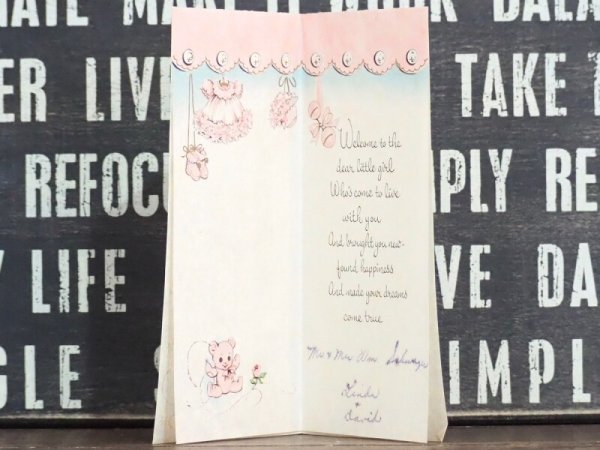 MAKE IT WORK BALA
ER LIVE
TAKE
REFOC
PLY RE
Y LIFE
VE DA
GLE
SIMPL
Welcome to the
dear little girl
Who's come to live
with you
And brought you new-
found happiness
And made your dreams
come true
Mr & Mrs. Wm.
Linda
+
David